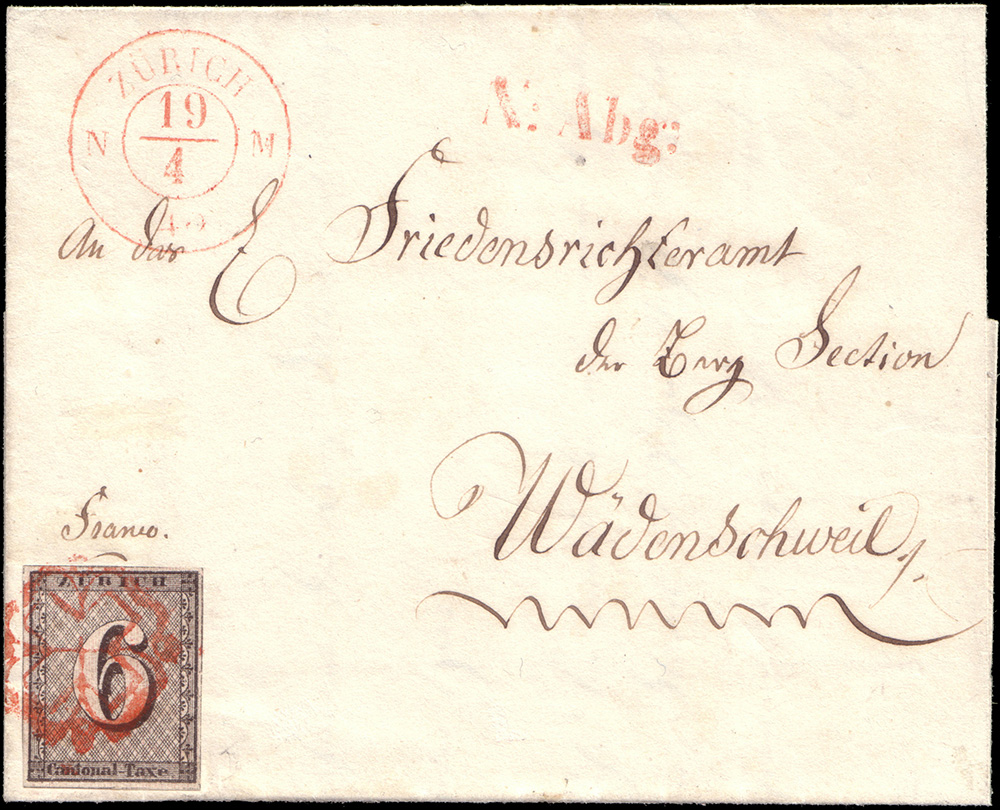 ZÜRICH
N 19/4 M
N: Abg:
An das E Friedensrichteramt
der Berg Section
Wädenschweil
Franco.
ZÜRICH
6
Cantonal-Taxe.